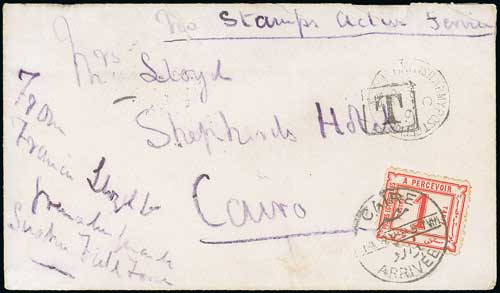 No Stamps Active Service
Mrs Lloyd
Shepherds Hotel
Cairo
From
Francis Lloyd
Grenadier Guards
Suakin Field Force
T
BRITISH ARMY POST
C
A PERCEVOIR
1
CAIRE
ARRIVEE